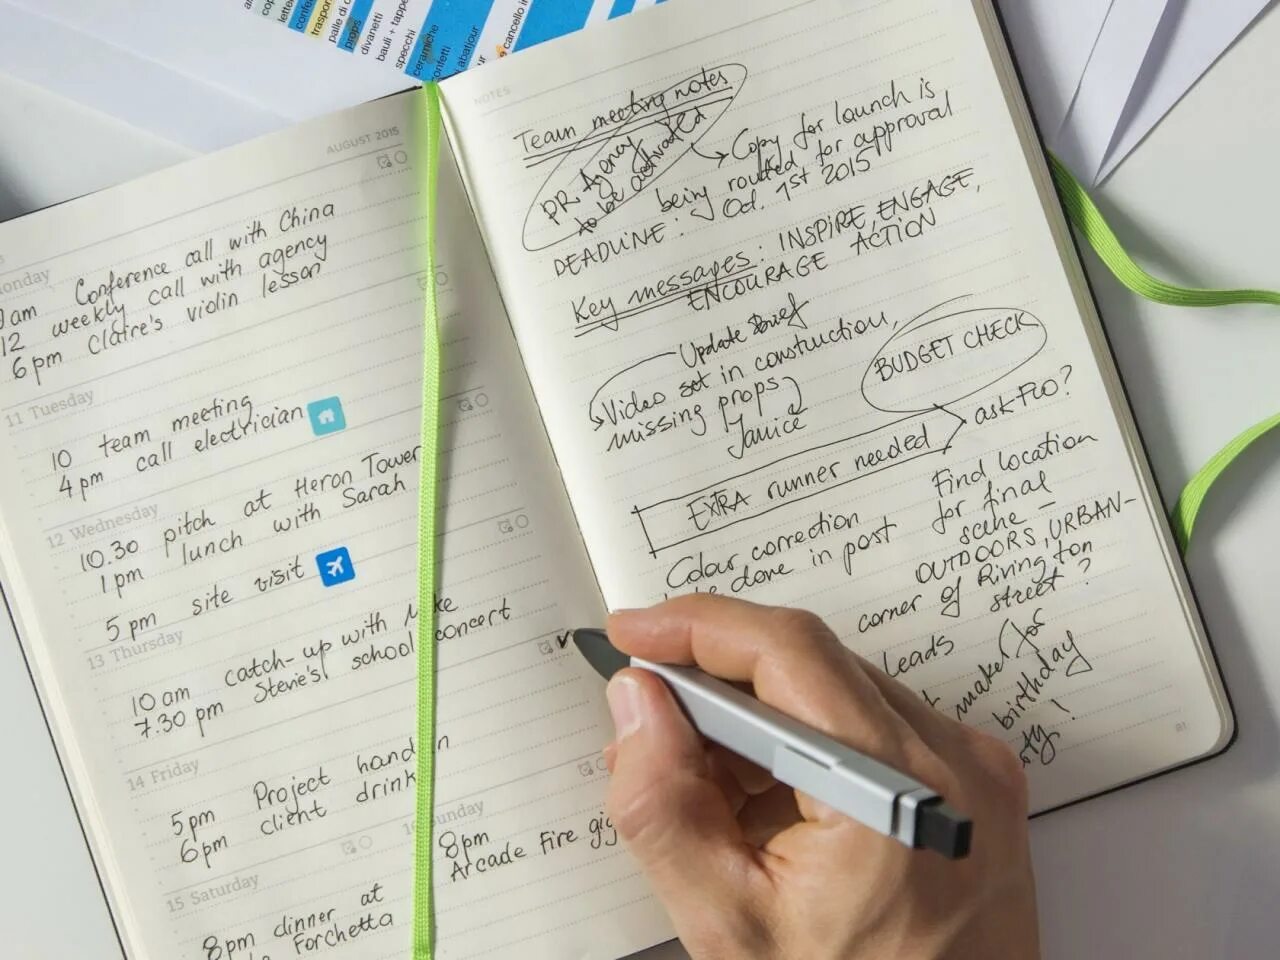 AUGUST 2015
9am Conference call with China
12 weekly call with agency
6pm Claire's violin lesson
11 Tuesday
10 team meeting
4pm call electrician
12 Wednesday
10.30 pitch at Heron Tower
1pm lunch with Sarah
5pm site visit
13 Thursday
10am catch-up with
7.30pm Stevie's school concert
14 Friday
5pm Project
6pm client drink
15 Saturday
8pm dinner at
Forchetta
8pm
Arcade Fire gig
NOTES
Team meeting notes
PR Agency
to be activated
Copy for launch is
being routed for approval
DEADLINE: Oct. 1st 2015
Key messages: INSPIRE, ENGAGE,
ENCOURAGE ACTION
Update Brief
Video set in construction,
missing props
Janice
BUDGET CHECK
EXTRA runner needed
ask Foo?
Colour correction
done in post
Find location
for final
scene –
OUTDOORS, URBAN-
corner of Rivington
street?
Leads
maker for
birthday
81
divanetti
specchi
ceramiche